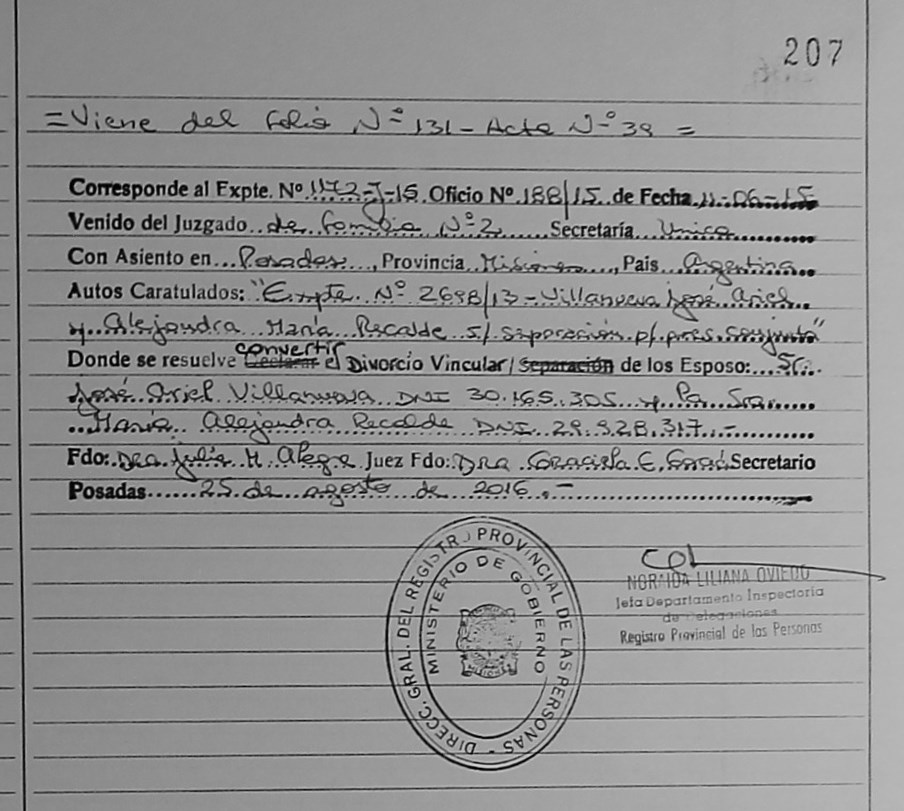 207
= Viene del folio Nº 131 - Acta Nº 39 =
Corresponde al Expte. Nº 1172-J-15. Oficio Nº 188/15 de Fecha 11-06-15
Venido del Juzgado de Familia Nº 2 Secretaría Unica
Con Asiento en Posadas, Provincia Misiones, Pais Argentina
Autos Caratulados: "Expte Nº 2698/13 - Villanueva José Ariel
y Alejandra María Recalde s/ separación p/ pres. conjunta"
convertir
Donde se resuelve Declarar el Divorcio Vincular/Separación de los Esposo: Sr.
José Ariel Villanueva DNI 30.165.305 y la Sra
María Alejandra Recalde DNI 29.928.317.-
Fdo: Dra Julia M. Alegre Juez Fdo: Dra Graciela E. Secretario
Posadas 25 de agosto de 2016.-
DIRECC. GRAL. DEL REGISTRO PROVINCIAL DE LAS PERSONAS -
MINISTERIO DE GOBIERNO
MISIONES
NORMIDA LILIANA OVIEDO
Jefa Departamento Inspectoría
de Delegaciones
Registro Provincial de las Personas